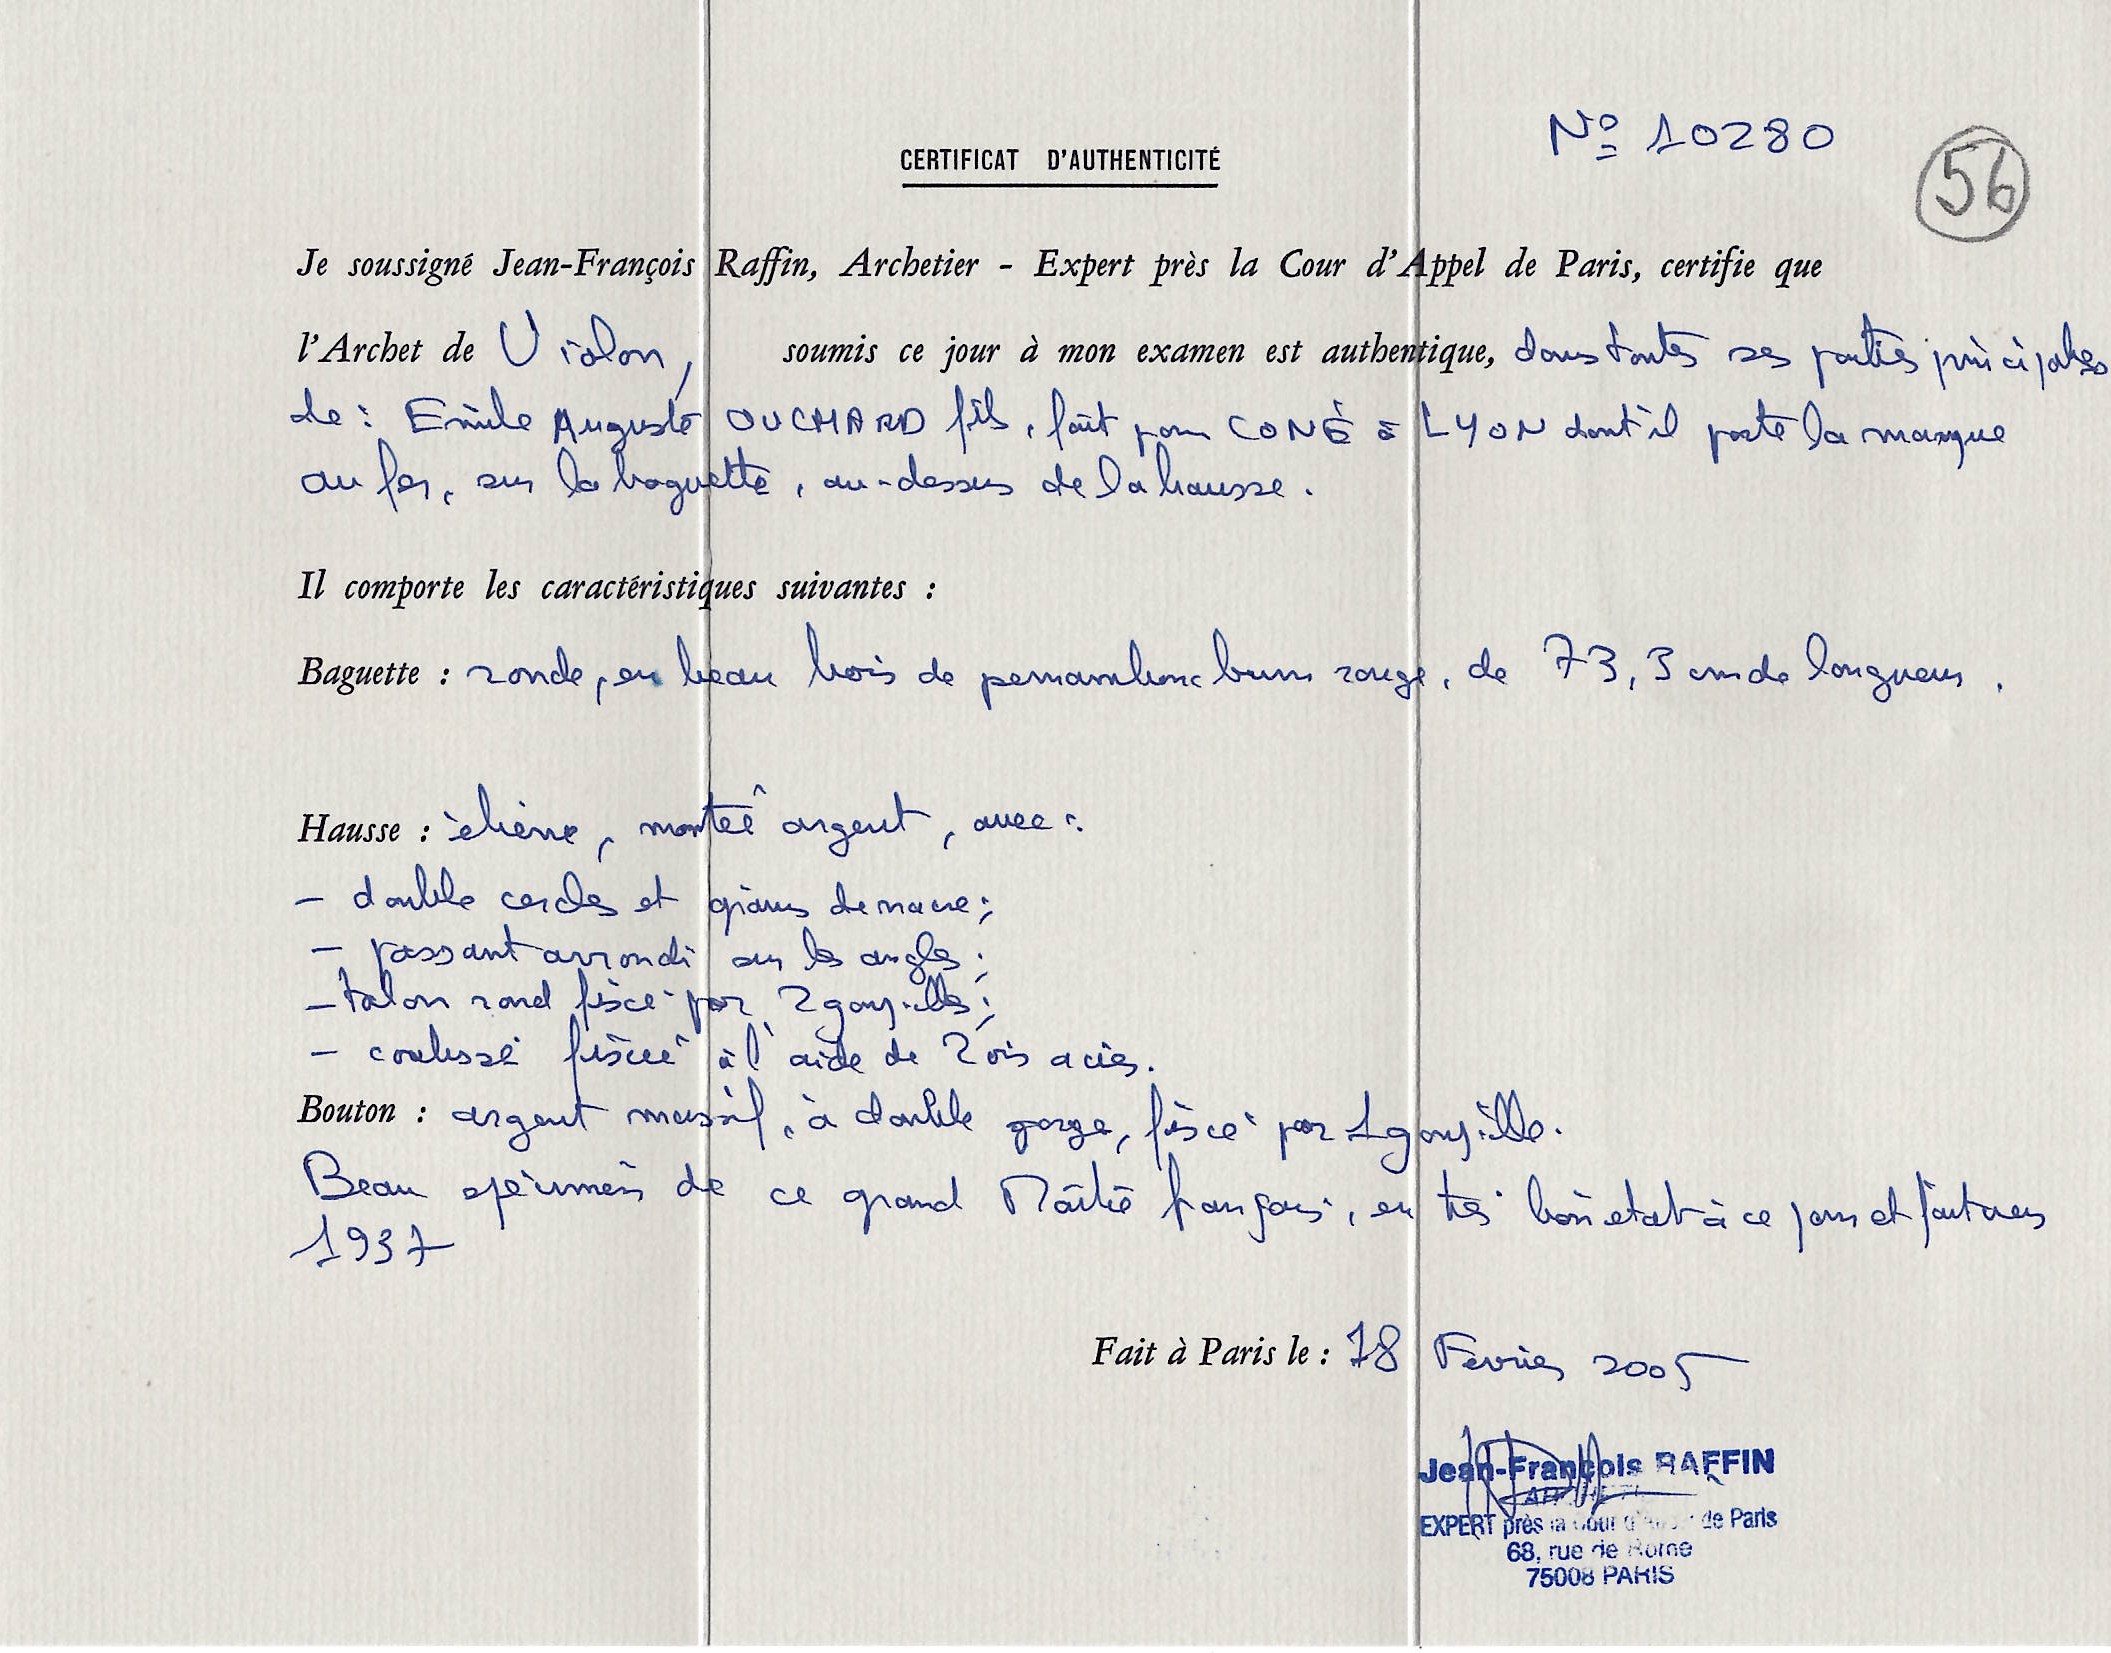 Nº 10280
56
CERTIFICAT D'AUTHENTICITÉ
Je soussigné Jean-François Raffin, Archetier - Expert près la Cour d'Appel de Paris, certifie que
l'Archet de Violon, soumis ce jour à mon examen est authentique, dans toutes ses parties principales
de : Emile Auguste OUCHARD fils, fait pour CONÉ à LYON dont il porte la marque
au fer, sur la baguette, au-dessus de la hausse.
Il comporte les caractéristiques suivantes :
Baguette : ronde, en beau bois de pernambouc brun rouge, de 73,3 cm de longueur.
Hausse : ébène, montée argent, avec :
- double cercles et grains de nacre ;
- passant arrondi sur les angles ;
- talon rond fixé par 2 goupilles ;
- coulisse fixée à l'aide de 2 vis acier.
Bouton : argent massif, à double gorge, fixé par 1 goupille.
Beau spécimen de ce grand Maître français, en très bon état à ce jour et fait vers
1937
Fait à Paris le : 18 Février 2005
Jean-François RAFFIN
EXPERT près la Cour d'Appel de Paris
68, rue de Rome
75008 PARIS